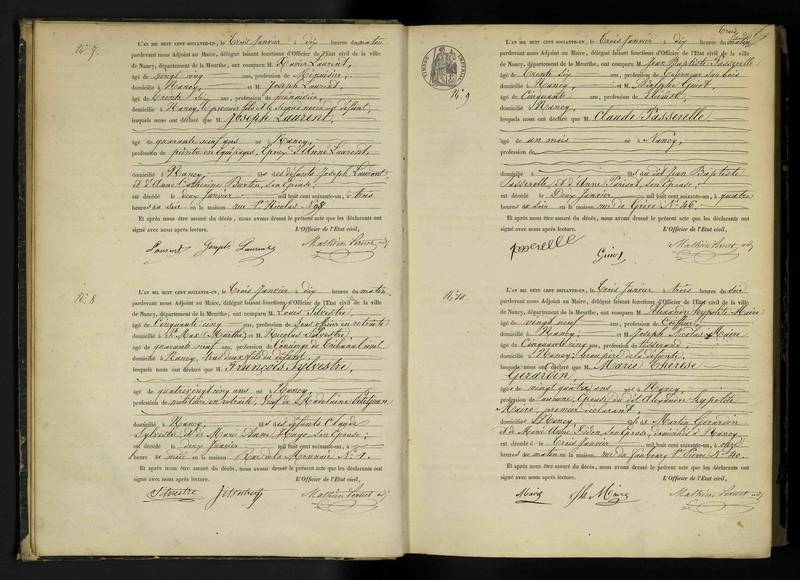 N.º 7.
L'AN MIL HUIT CENT SOIXANTE-UN, le Trois Janvier à dix heures du matin
pardevant nous Adjoint au Maire, délégué faisant fonctions d'Officier de l'État civil de la ville
de Nancy, département de la Meurthe, ont comparu M. Xavier Laurent,
âgé de vingt cinq ans, profession de Menuisier,
domicilié à Nancy, et M. Joseph Laurent,
âgé de trente six ans, profession de menuisier,
domicilié à Nancy, le premier fils et le second neveu du défunt,
lesquels nous ont déclaré que M. Joseph Laurent,
âgé de quarante neuf ans né à Nancy,
profession de peintre en équipages, époux d'Anne Laurent,
domicilié à Nancy, des défunts Joseph Laurent
et d'Anne Catherine son épouse,
est décédé le deux Janvier mil huit cent soixante-un, à trois
heures du soir en la maison rue St Nicolas N.º 98.
Et après nous être assuré du décès, nous avons dressé le présent acte que les déclarants ont
signé avec nous après lecture. L'Officier de l'État civil,
Laurent Joseph Laurent
N.º 8
L'AN MIL HUIT CENT SOIXANTE-UN, le Trois Janvier à dix heures du matin,
pardevant nous Adjoint au Maire, délégué faisant fonctions d'Officier de l'État civil de la ville
de Nancy, département de la Meurthe, ont comparu M. Louis Silvestre,
âgé de Cinquante cinq ans, profession de Sous officier en retraite
domicilié à St Max (Meurthe) et M. Nicolas Silvestre,
âgé de quarante neuf ans, profession de Concierge du Tribunal civil
domicilié à Nancy, tous deux fils du défunt,
lesquels nous ont déclaré que M. François Sylvestre,
âgé de quatre vingt cinq ans né à Nancy,
profession de militaire en retraite, Veuf de Madelaine Petitjean
domicilié à Nancy, des défunts Claude
Sylvestre et de Marie Anne son épouse;
est décédé le deux Janvier mil huit cent soixante-un, à
heures de midi en la maison Rue de la Monnaie N.º 1.
Et après nous être assuré du décès, nous avons dressé le présent acte que les déclarants ont
signé avec nous après lecture. L'Officier de l'État civil,
Silvestre
N.º 9
L'AN MIL HUIT CENT SOIXANTE-UN, le Trois Janvier à dix heures du matin
pardevant nous Adjoint au Maire, délégué faisant fonctions d'Officier de l'État civil de la ville
de Nancy, département de la Meurthe, ont comparu M. Jean Baptiste Passerelle
âgé de Trente six ans, profession de Tourneur en bois
domicilié à Nancy, et M. Guiot
âgé de Cinquante ans, profession de
domicilié à Nancy,
lesquels nous ont déclaré que M. Claude Passerelle
âgé de un mois né à Nancy,
profession de
domicilié à dit Jean Baptiste
Passerelle, et d'Anne son épouse,
est décédé le Deux Janvier mil huit cent soixante-un, à quatre
heures du soir en la maison rue de Grève N.º 46.
Et après nous être assuré du décès, nous avons dressé le présent acte que les déclarants ont
signé avec nous après lecture. L'Officier de l'État civil,
Passerelle Guiot
N.º 10
L'AN MIL HUIT CENT SOIXANTE-UN, le Trois Janvier à trois heures du soir
pardevant nous Adjoint au Maire, délégué faisant fonctions d'Officier de l'État civil de la ville
de Nancy, département de la Meurthe, ont comparu M. Alexandre Hypolite Maire
âgé de vingt neuf ans, profession de Coiffeur,
domicilié à Nancy, et M. Joseph Nicolas Maire
âgé de Cinquante cinq ans, profession de tisserand,
domicilié à Nancy, beau père de la défunte,
lesquels nous ont déclaré que M. Marie Thérèse
Gérardin
âgé de vingt quatre ans née à Nancy,
profession de épouse du dit Alexandre Hypolite
Maire, premier déclarant,
domiciliée à Nancy, de Martin Gérardin
et de Marie Anne son épouse, domiciliés à Nancy
est décédé le Trois Janvier mil huit cent soixante-un, à onze
heures du matin en la maison rue du Faubourg St Pierre N.º 40.
Et après nous être assuré du décès, nous avons dressé le présent acte que les déclarants ont
signé avec nous après lecture. L'Officier de l'État civil,
Maire